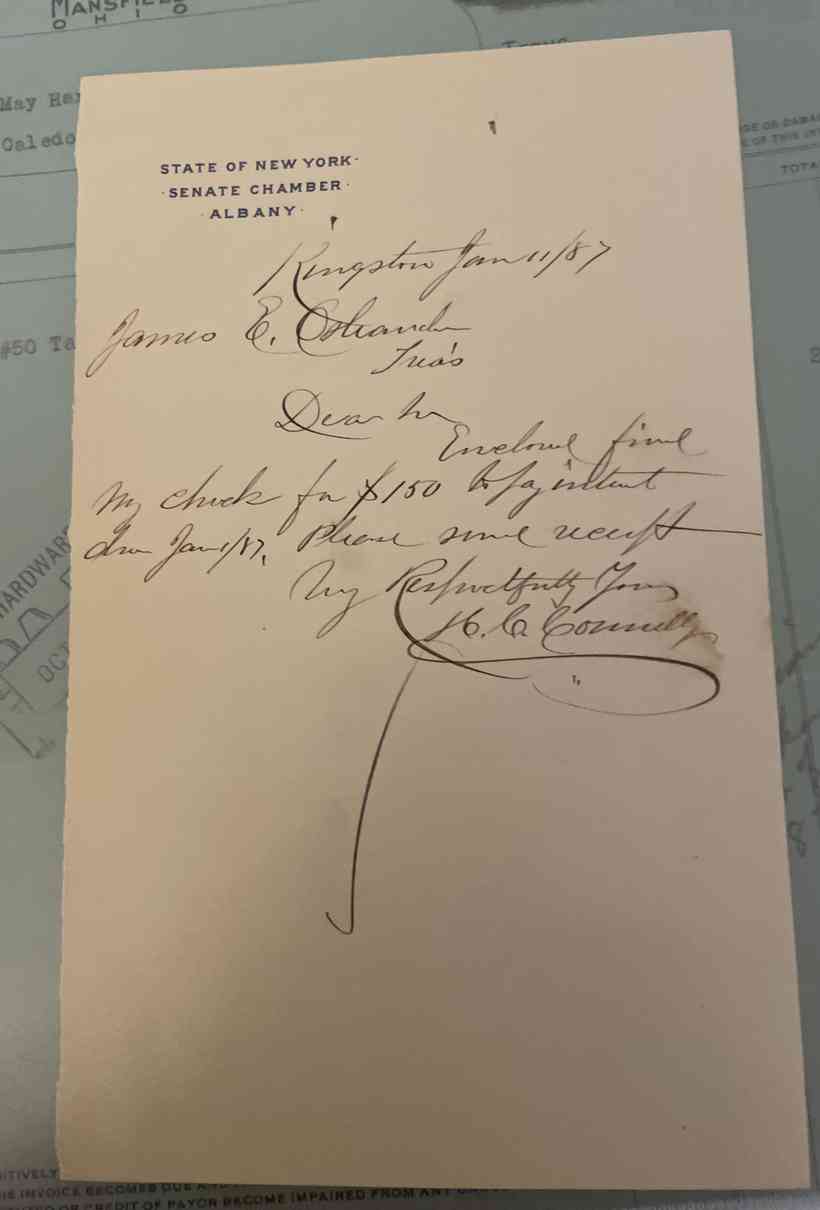 MANSFIELD
OHIO
May Har
Caledo
#50 Ta
TOTA
HARDWARE
OCT
STATE OF NEW YORK·
·SENATE CHAMBER·
·ALBANY·
Kingston Jan 11/87
James E. Ostrander
Treas
Dear Sir
Enclosed find
My check for $150 to pay interest
due Jan 1/87. Please send receipt
Very Respectfully Yours
H. C. Connelly
ITIVELY
INVOICE BECOMES DUE AND
OR CREDIT OF PAYOR BECOME IMPAIRED FROM ANY CAUSE